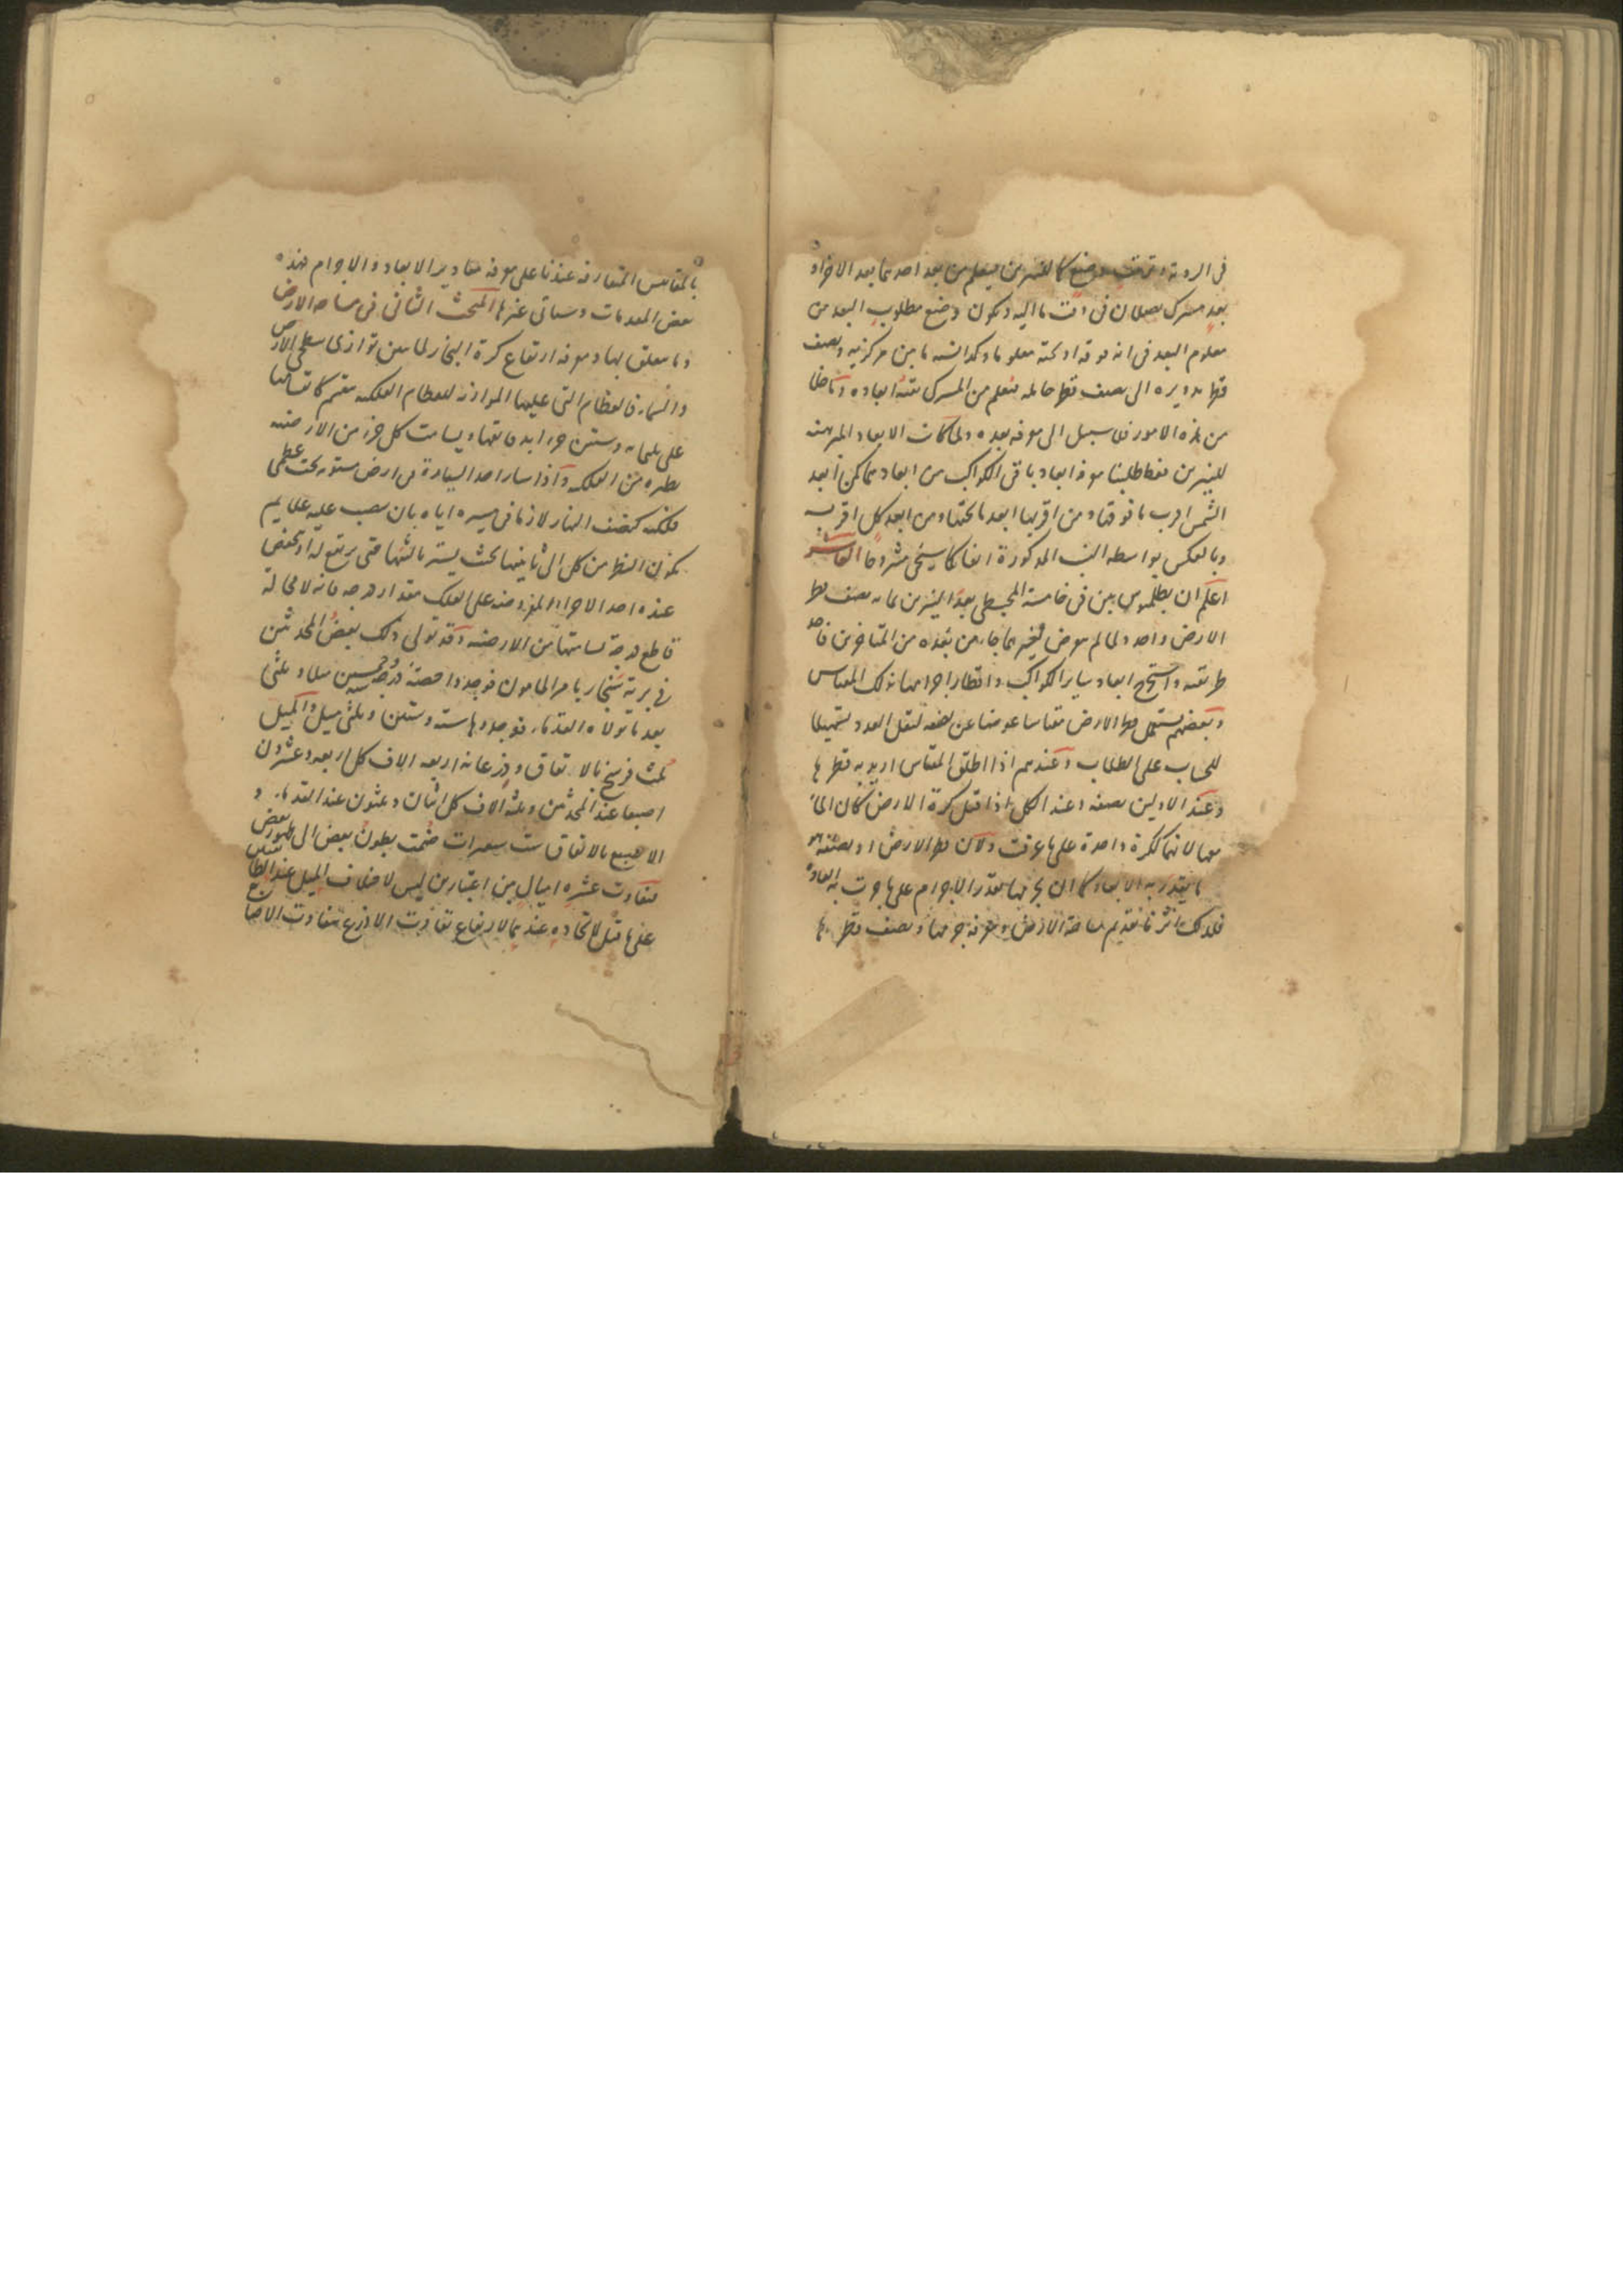 في الروية وترتيب وضع كالنيرين فيعلم من بعد احدهما بعد الاخر او
بعد مشترك يصلان في وقت ما اليه وتكون وضع مطلوب البعد من
معلوم البعد في انه فوقه او تحته معلوما وكذا نسبة ما بين مركزيه ونصف
قطر تدويره الى نصف قطر حامله فيعلم من المشترك بقية ابعاده وما خلا
من هذه الامور فلا سبيل الى معرفة بعده ولما كانت الابعاد المبرهنة
للنيرين فقط طلبنا معرفة ابعاد باقي الكواكب من ابعادهما لكن ابعد
الشمس اقرب ما فوقها ومن اقربها ابعد ما تحتها ومن ابعد كل اقربه
وبالعكس بواسطة النسب المذكورة انفا كما سيجي مشروحا العاشر
اعلم ان بطلميوس بين في خامسة المجسطي بعد النيرين بما به نصف قطر
الارض واحد ولما لم يعرض لغيرهما جاء من بعده من المتاخرين فاخذ
طريقته واستخرج ابعاد ساير الكواكب واقطار اجرامها بذلك المقياس
وبعضهم يستعمل قطر الارض مقياسا عوضا عن نصفه لتقل العدد تسهيلا
للحساب على الطلاب وعندهم اذا اطلق المقياس اريد به قطرها
وعند الاولين نصفه وعند الكل اذا قيل كرة الارض كان الماء
معها لانهما ككرة واحدة على ما عرفت ولان قطر الارض او نصفه هو
ما يقدر به الابعاد كما ان بجرمها يقدر الاجرام على ما جرت به العادة
فلذلك اثرنا تقديم مساحة الارض ومعرفة جرمها ونصف قطرها
بالمقاييس المتعارفة عندنا على معرفة مقادير الابعاد والاجرام فهذه
بعض المقدمات وسياتي غيرها المبحث الثاني في مساحة الارض
وما يتعلق بها ومعرفة ارتفاع كرة البخار لما تبين توازي سطحي الارض
والسماء فالعظام التي عليها الموازية للعظام الفلكية تنقسم كانقسامها
على ثلثمائة وستين جزا ابدا بها ويسامت كل جزء من الارضية
نظيره من الفلكية واذا سار احد السيارة في ارض مستوية تحت عظمى
فلكية كنصف النهار لازما في مسيره اياه بان ينصب عليه علايم
يكون النظر من كل الى ثانيتها بحيث يستر ثالثتها حتى يرتفع له او ينخفض
عنده احد الاجزاء المفروضة على الفلك مقدار درجة فانه لا محالة
قاطع درجة تسامتها من الارضية وقد تولى ذلك بعض المحدثين
في برية سنجار بامر المامون فوجدوا حصة درجة ستة وخمسين ميلا وثلثي
بعد ما تولاه القدماء فوجدوها ستة وستين وثلثي ميل والميل
ثلث فرسخ بالاتفاق وذرعانه اربعة الاف كل اربعة وعشرون
اصبعا عند المحدثين وثلثة الاف كل اثنان وثلثون عند القدماء و
الاصبع بالاتفاق ست شعيرات ضمت بطون بعض الى ظهور بعض
فتفاوت عشرة اميال بين اعتبارين ليس لاختلاف الميل عند الطائفتين
على ما قيل لاتحاده عندهما لارتفاع تفاوت الاذرع بتفاوت الاصابع